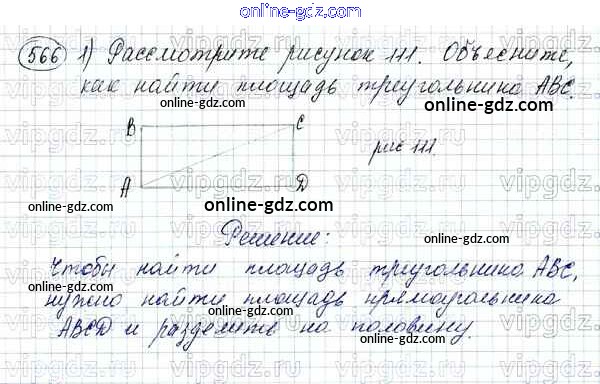 online-gdz.com
566 1) Рассмотрите рисунок 111. Объясните,
как найти площадь треугольника ABC.
online-gdz.com online-gdz.com
B C
рис 111.
A D
online-gdz.com
online-gdz.com online-gdz.com
Решение:
online-gdz.com
Чтобы найти площадь треугольника ABC,
нужно найти площадь прямоугольника
ABCD и разделить на половину.
online-gdz.com online-gdz.com